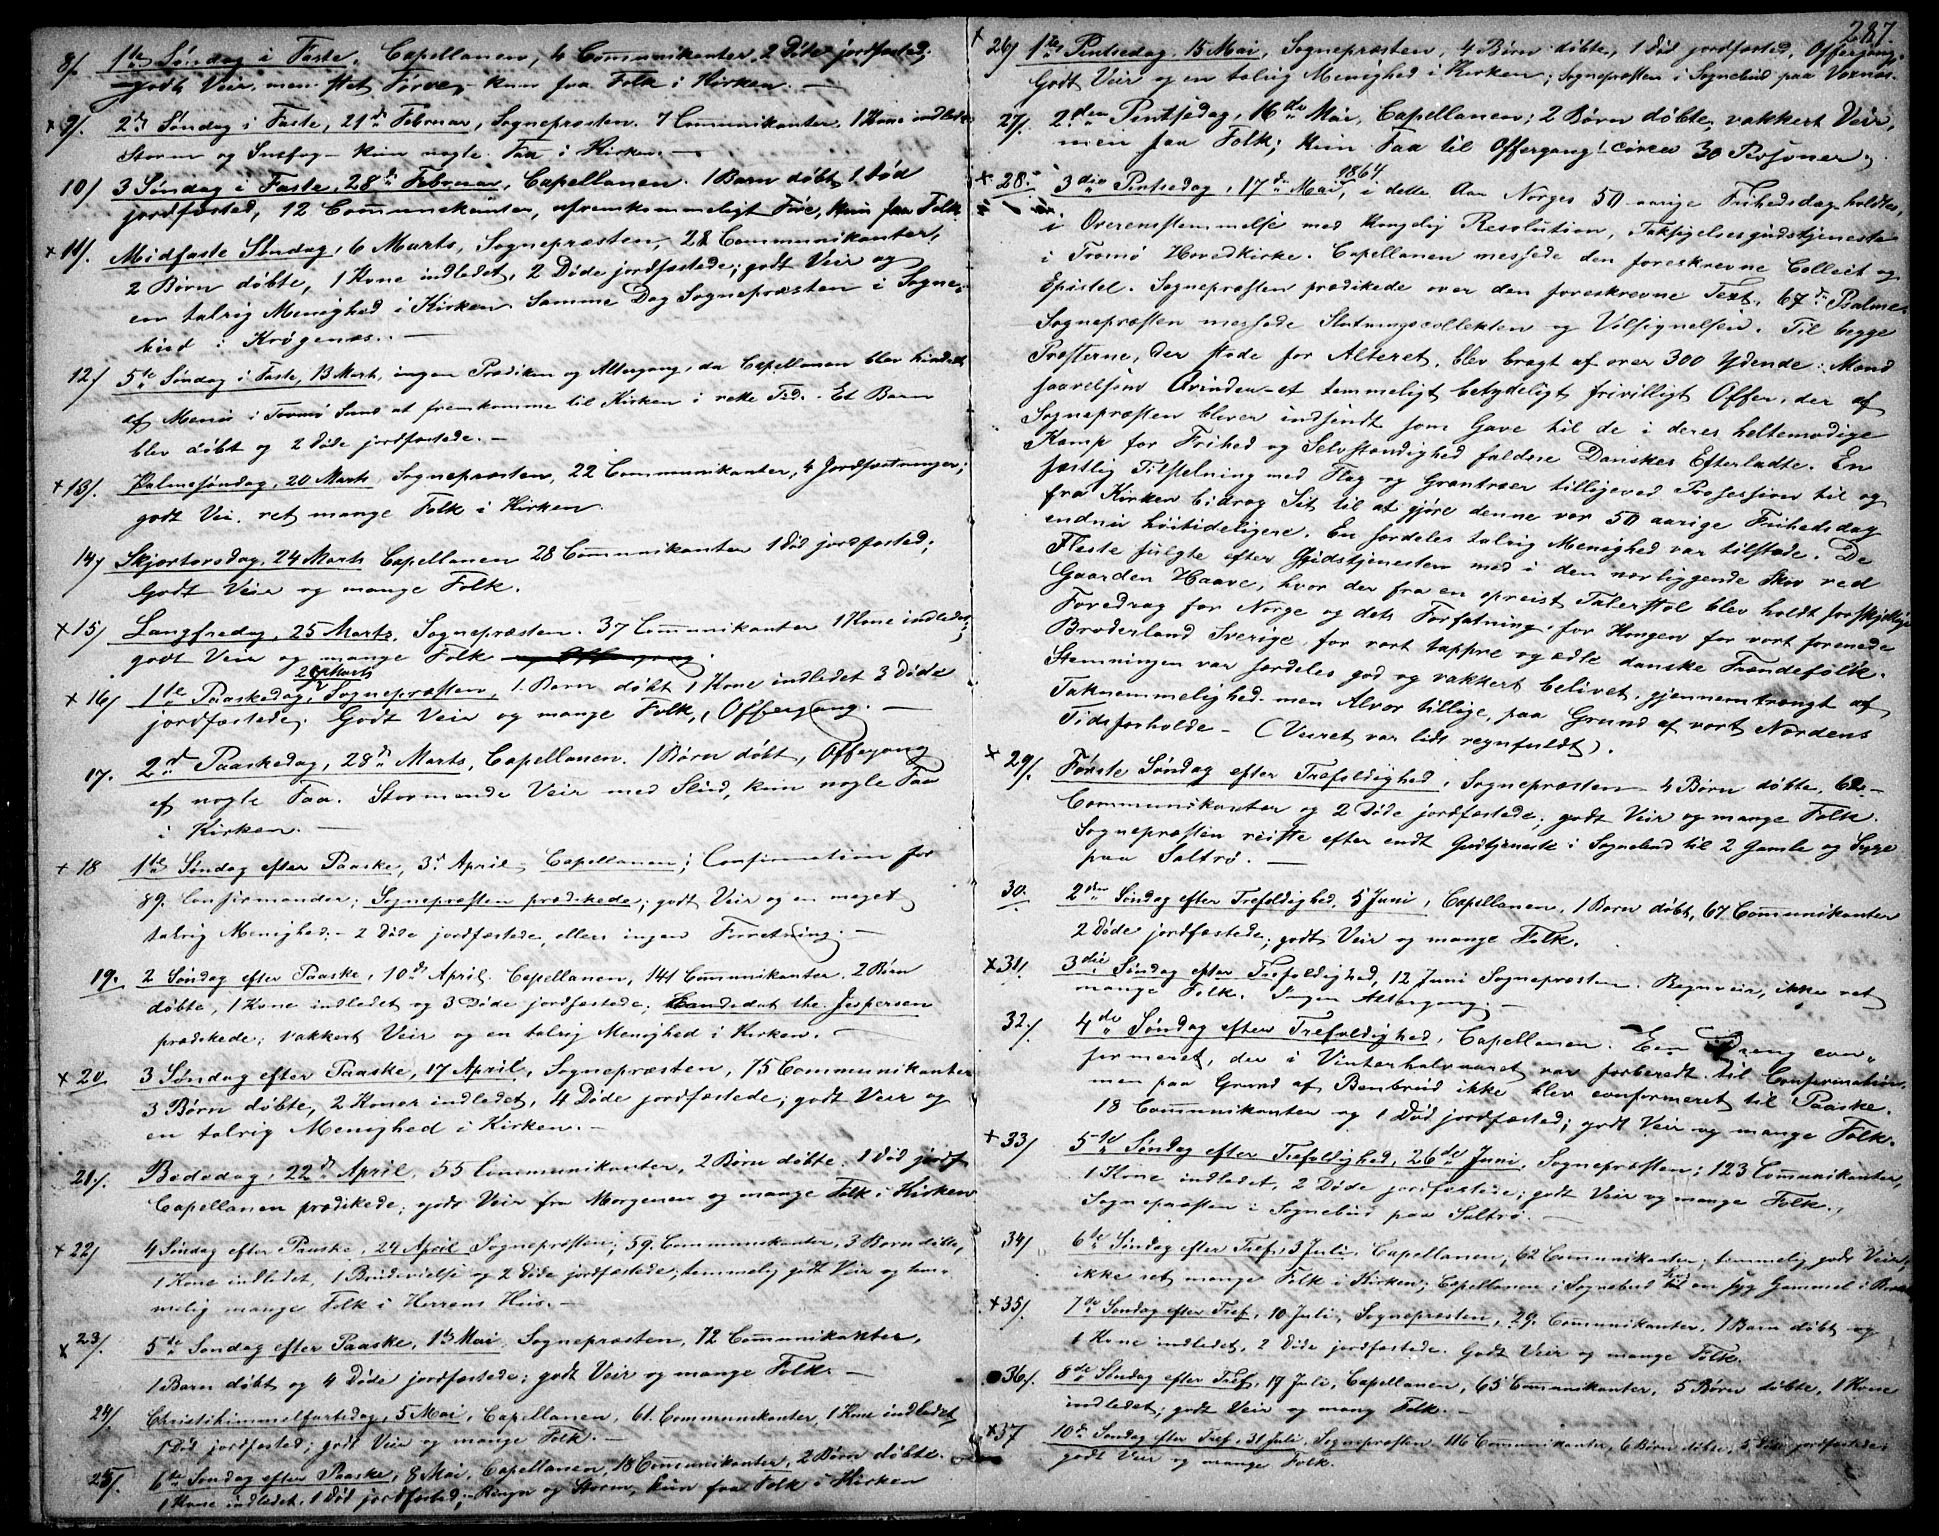 8/. 1ste Søndag i Faste, Capellanen, 4 Communikanter, 2 Døde jordfæstede;
godt Veir, men slet Føre, kun faa Folk i Kirken. —
x 9/. 2den Søndag i Faste, 21de Februar, Sognepræsten. 7 Communikanter. 1 Kone indledet
Storm og Snefog – kun nogle Faa i Kirken. —
10/ 3 Søndag i Faste, 28de Februar, Capellanen. 1 Barn døbt, 1 Død
jordfæsted, 12 Communikanter, ufremkommeligt Føre, kun faa Folk.
x 11/. Midfaste Søndag, 6 Marts, Sognepræsten, 28 Communikanter,
2 Børn døbte, 1 Kone indledet, 2 Døde jordfæstede; godt Veir og
en talrig Menighed i Kirken. Samme Dag Sognepræsten i Sogne-
bud i Krøgenæs. —
12/ 5te Søndag i Faste, 13 Marts, ingen Prædiken og Altergang, da Capellanen blev hindret
af Menis i Tromø Sund at fremkomme til Kirken i rette Tid. Et Barn
blev døbt og 2 Døde jordfæstede. —
x 13/. Palmesøndag, 20 Marts, Sognepræsten, 22 Communikanter, 4 Jordfæstninger;
godt Veir, ret mange Folk i Kirken.
14/ Skjærtorsdag, 24 Marts Capellanen 28 Communikanter 1 Død jordfæsted;
Godt Veir og mange Folk.
x 15/ Langfredag, 25 Marts, Sognepræsten. 37 Communikanter 1 Kone indledet;
godt Veir og mange Folk og Offergang.
27 Marts
x 16/ 1ste Paaskedag, Sognepræsten, 1 Barn døbt 1 Kone indledet 3 Døde
jordfæstede. Godt Veir og mange Folk, Offergang. —
17. 2den Paaskedag, 28de Marts, Capellanen. 1 Børn døbt, Offergang
af nogle Faa. Stormende Veir med Slud, kun nogle Faa
i Kirken. —
x 18 1ste Søndag efter Paaske, 3de April, Capellanen; Confirmation for
89. Confirmander; Sognepræsten prædikede; godt Veir og en meget
talrig Menighed; – 2 Døde jordfæstede, ellers ingen Forretning. —
19. 2 Søndag efter Paaske, 10de April. Capellanen, 141 Communikanter. 2 Børn
døbte, 1 Kone indledet og 3 Døde jordfæstede; Candidat the. Jespersen
prædikede; vakkert Veir og en talrig Menighed i Kirken. —
x 20 3 Søndag efter Paaske, 17 April, Sognepræsten, 75 Communikanter
3 Børn døbte, 2 Koner indledet, 4 Døde jordfæstede; godt Veir og
en talrig Menighed i Kirken. —
21/. Bededag, 22de April, 55 Communikanter, 2 Børn døbte. 1 Død jordf.
Capellanen prædikede; godt Veir fra Morgenen og mange Folk i Kirken
x 22/ 4 Søndag efter Paaske, 24 April Sognepræsten; 59. Communikanter, 3 Børn døbte,
1 Kone indledet, 1 Brudevielse og 2 Døde jordfæstede; temmelig godt Veir og tem-
melig mange Folk i Herrens Hus. —
x 23/. 5te Søndag efter Paaske, 1ste Mai, Sognepræsten, 72 Communikanter,
1 Barn døbt og 4 Døde jordfæstede; godt Veir og mange Folk. —
24/. Christihimmelfartsdag, 5 Mai, Capellanen, 61 Communikanter, 1 Kone indledet
1 Død jordfæsted; godt Veir og mange Folk. —
25/. 6te Søndag efter Paaske, 8 Mai, Capellanen, 18 Communikanter, 2 Børn døbte.
1 Kone indledet. 1 Død jordfæsted; Regn og Storm, kun faa Folk i Kirken
287.
x 26/ 1ste Pintsedag, 15 Mai, Sognepræsten, 4 Børn døbte, 1 Død jordfæsted, Offergang,
Godt Veir og en talrig Menighed i Kirken; Sognepræsten i Sognebud paa Voxnæs.
27/. 2den Pintsedag, 16de Mai, Capellanen; 2 Børn døbte, vakkert Veir,
men faa Folk; kun Faa til Offergang! circa 30 Personer.
1864
x 28. 3die Pintsedag, 17de Mai, i dette Aar Norges 50 aarige Frihedsdag holdtes,
i Overensstemmelse med Kongelig Resolution, Taksigelsesgudstjeneste
i Tromø Hovedkirke. Capellanen messede den foreskrevne Collect og
Epistel. Sognepræsten prædikede over den foreskrevne Text, 67de Psalme.
Sognepræsten messede Slutningscollekten og Velsignelsen. Til begge
Præsterne, der stode for Alteret, blev bragt af over 300 Ydende: Mænd
saavelsom Qvinder – et temmeligt betydeligt frivilligt Offer, der af
Sognepræsten bliver indsendt som Gave til de i deres heltemodige
Kamp for Frihed og Selvstændighed faldne Danskes Efterladte. En
festlig Tilstelning med Flag og Grantræer tilligemed Prosession til og
fra Kirken bidrog Sit til at gjøre denne vor 50 aarige Frihedsdag
endnu høitideligere. En særdeles talrig Menighed var tilstede. De
Fleste fulgte efter Gudstjenesten med i den nærliggende Skov ved
Gaarden Haave, hvor der fra en opreist Talerstol blev holdt forskjellige
Foredrag for Norge og dets Forfatning, for Kongen for vort forenede
Broderland Sverige, for vort tappre og ædle danske Frændefolk.
Stemningen var særdeles god og vakkert belivet, gjennemtrængt af
Taknemmelighed, men Alvor tillige, paa Grund af vort Nordens
Tidsforholde – (Veiret var lidt regnfuldt).
x 29/. Første Søndag efter Trefoldighed, Sognepræsten – 4 Børn døbte, 62 –
Communikanter og 2 Døde jordfæstede; godt Veir og mange Folk.
Sognepræsten reiste efter endt Gudtjeneste i Sognebud til 2 Gamle og Syge
paa Saltrø. —
30. 2den Søndag efter Trefoldighed, 5 Juni, Capellanen, 1 Barn døbt, 67 Communikanter
2 Døde jordfæstede; godt Veir og mange Folk.
x 31/. 3die Søndag efter Trefoldighed, 12 Juni Sognepræsten. Regnveir, ikke ret
mange Folk. Ingen Altergang. —
32/. 4de Søndag efter Trefoldighed, Capellanen. Een Dreng con-
firmeret, der i Vinterhalvaaret var forberedt til Confirmation,
men paa Grund af Benbrud ikke blev confirmeret til Paaske.
18 Communikanter og 1 Død jordfæsted; godt Veir og mange Folk.
x 33/ 5te Søndag efter Trefoldighed, 26de Juni, Sognepræsten; 123 Communikanter,
1 Kone indledet, 2 Døde jordfæstede; godt Veir og mange Folk.
Sognepræsten i Sognebud paa Saltrø. —
34/ 6te Søndag efter Tref. 3 Juli, Capellanen, 62 Communikanter; temmelig godt Veir,
ikke ret mange Folk i Kirken; Capellanen i Sognebud til en syg Gammel i
x 35/. 7de Søndag efter Tref, 10 Juli, Sognepræsten, 29. Communikanter, 1 Barn døbt og
1 Kone indledet, 2 Døde jordfæstede. Godt Veir og mange Folk.
36/. 8de Søndag efter Tref, 17 Juli, Capellanen, 65 Communikanter, 5 Børn døbte, 1 Kone
indledet; godt Veir og mang Folk. —
x 37 10de Søndag efter Tref, 31 Juli, Sognepræsten 116 Communikanter, 6 Børn døbte, 5 Døde jordfæstede;
godt Veir og mange Folk.